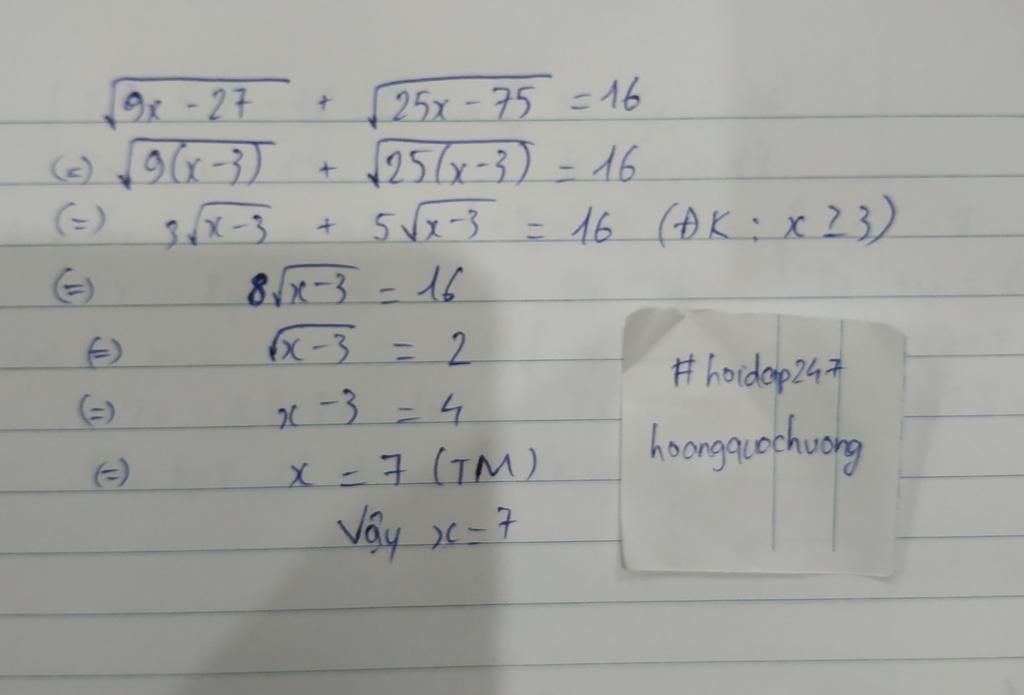 √(9x - 27) + √(25x - 75) = 16
(=) √(9(x-3)) + √(25(x-3)) = 16
(=) 3√(x-3) + 5√(x-3) = 16 (ĐK : x ≥ 3)
(=) 8√(x-3) = 16
(=) √(x-3) = 2
(=) x - 3 = 4
(=) x = 7 (TM)
Vậy x = 7
#hoidap247
hoangquochuong